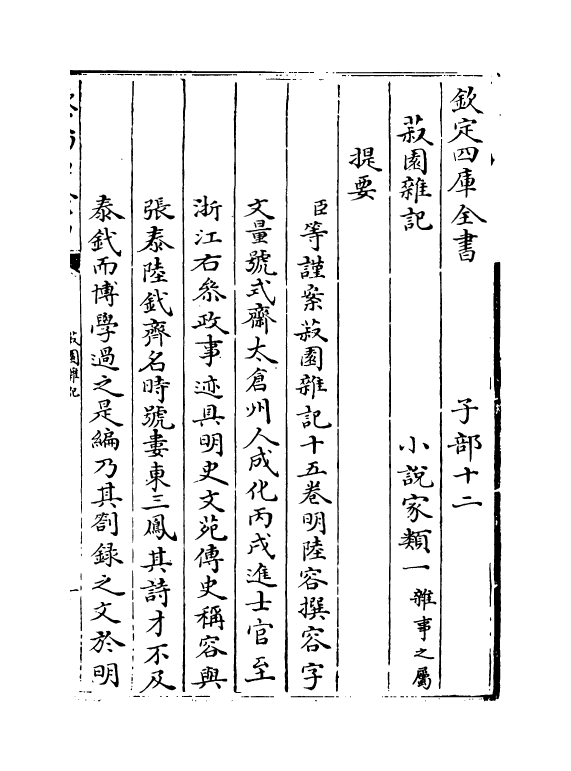 欽定四庫全書　子部十二
菽園雜記　小說家類一雜事之屬
提要
臣等謹案菽園雜記十五卷明陸容撰容字
文量號式齋太倉州人成化丙戌進士官至
浙江右叅政事迹具明史文苑傳史稱容與
張泰陸釴齊名時號婁東三鳳其詩才不及
泰釴而博學過之是編乃其劄録之文於明
菽園雜記
一